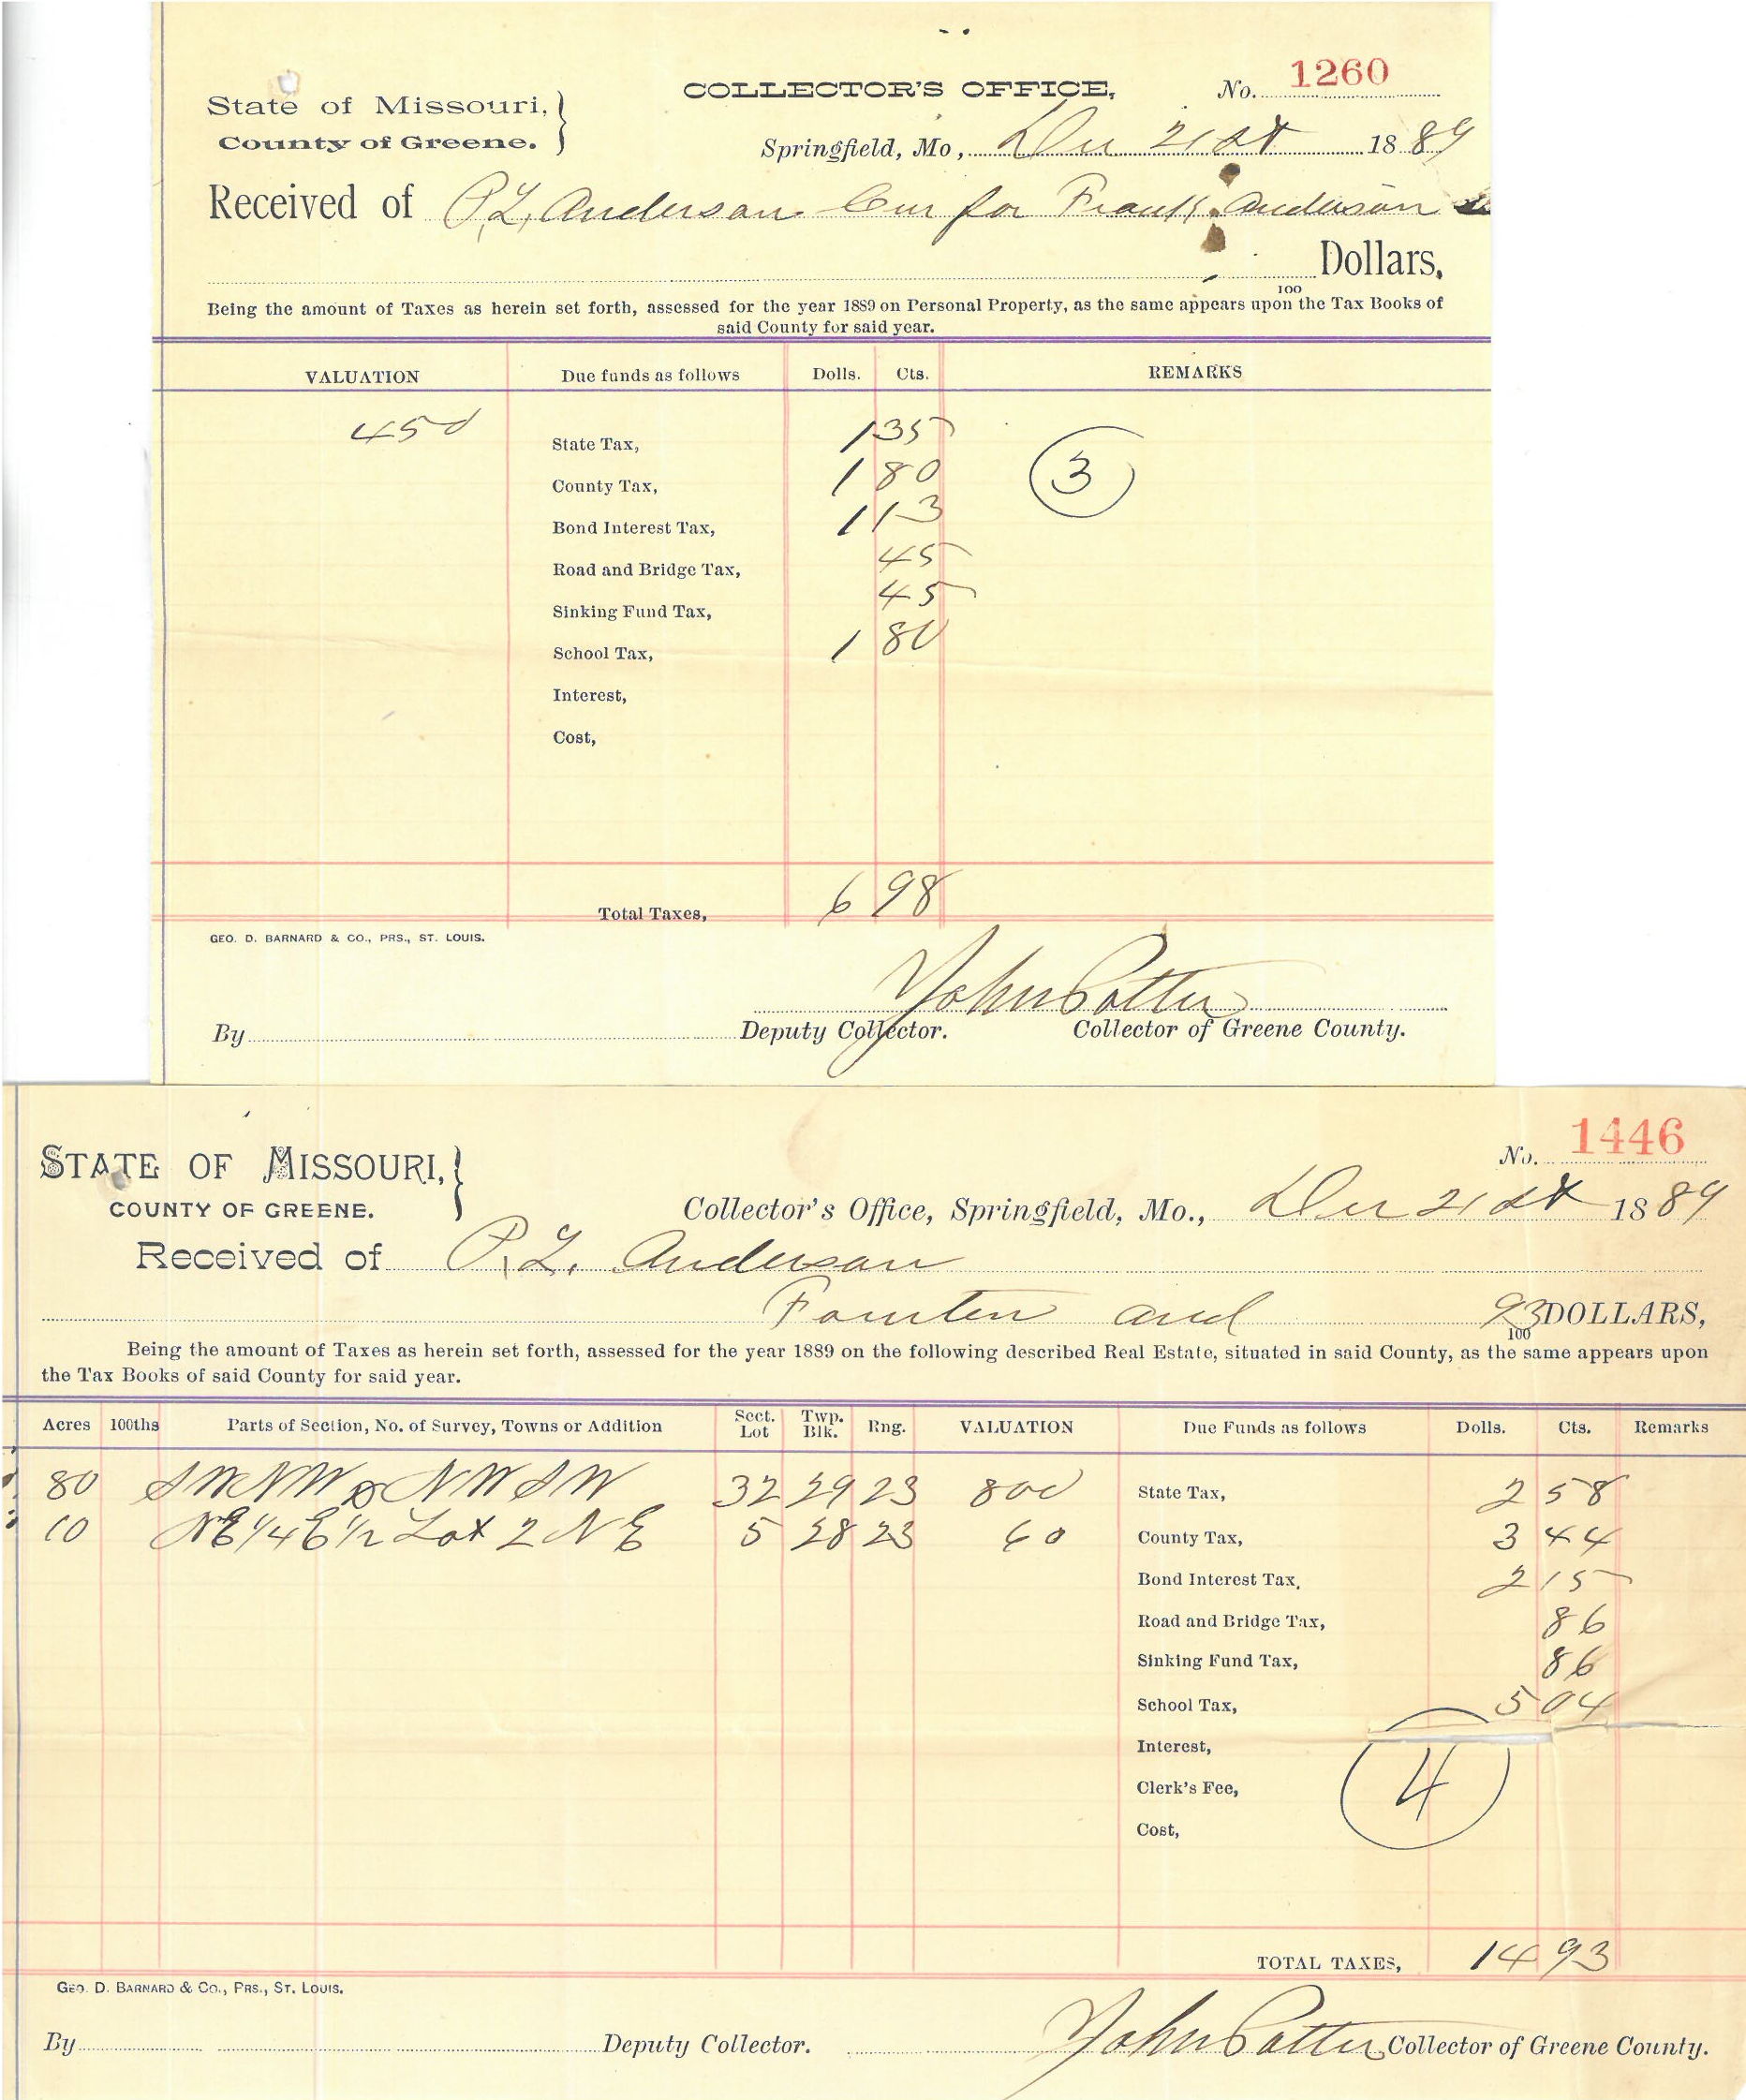 COLLECTOR'S OFFICE, No. 1260
State of Missouri,
County of Greene.
Springfield, Mo., Dec 21st 1889
Received of P.L. Anderson Cur for Frank Anderson
Dollars,
100
Being the amount of Taxes as herein set forth, assessed for the year 1889 on Personal Property, as the same appears upon the Tax Books of
said County for said year.
VALUATION Due funds as follows Dolls. Cts. REMARKS
450 State Tax, 1 35
County Tax, 1 80 3
Bond Interest Tax, 1 13
Road and Bridge Tax, 45
Sinking Fund Tax, 45
School Tax, 1 80
Interest,
Cost,
Total Taxes, 6 98
GEO. D. BARNARD & CO., PRS., ST. LOUIS.
John Potter
By Deputy Collector. Collector of Greene County.
No. 1446
STATE OF MISSOURI,
COUNTY OF GREENE.
Collector's Office, Springfield, Mo., Dec 21st 1889
Received of P.L. Anderson
Fourten and 93 DOLLARS,
100
Being the amount of Taxes as herein set forth, assessed for the year 1889 on the following described Real Estate, situated in said County, as the same appears upon
the Tax Books of said County for said year.
Acres 100ths Parts of Section, No. of Survey, Towns or Addition Sect. Lot Twp. Blk. Rng. VALUATION Due Funds as follows Dolls. Cts. Remarks
80 SWNW & NWSW 32 29 23 800 State Tax, 2 58
10 NE 1/4 E 1/2 Lot 2 NE 5 28 23 60 County Tax, 3 44
Bond Interest Tax, 2 15
Road and Bridge Tax, 86
Sinking Fund Tax, 86
School Tax, 5 04
Interest,
Clerk's Fee, 4
Cost,
TOTAL TAXES, 14 93
GEO. D. BARNARD & CO., PRS., ST. LOUIS.
By Deputy Collector. John Potter Collector of Greene County.